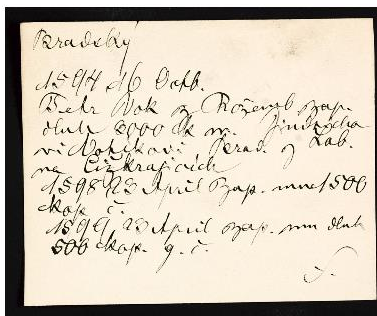 Kradský
1594 16 Octb.
Petr Vok z Rožmb zap.
dluh 8000 ck m. Jindřicho
vi
na Cížkrajicích
1598 23 April zap. mu 1500
kop č.
1599, 23 April zap. mu dluh
500 kop. g. č.